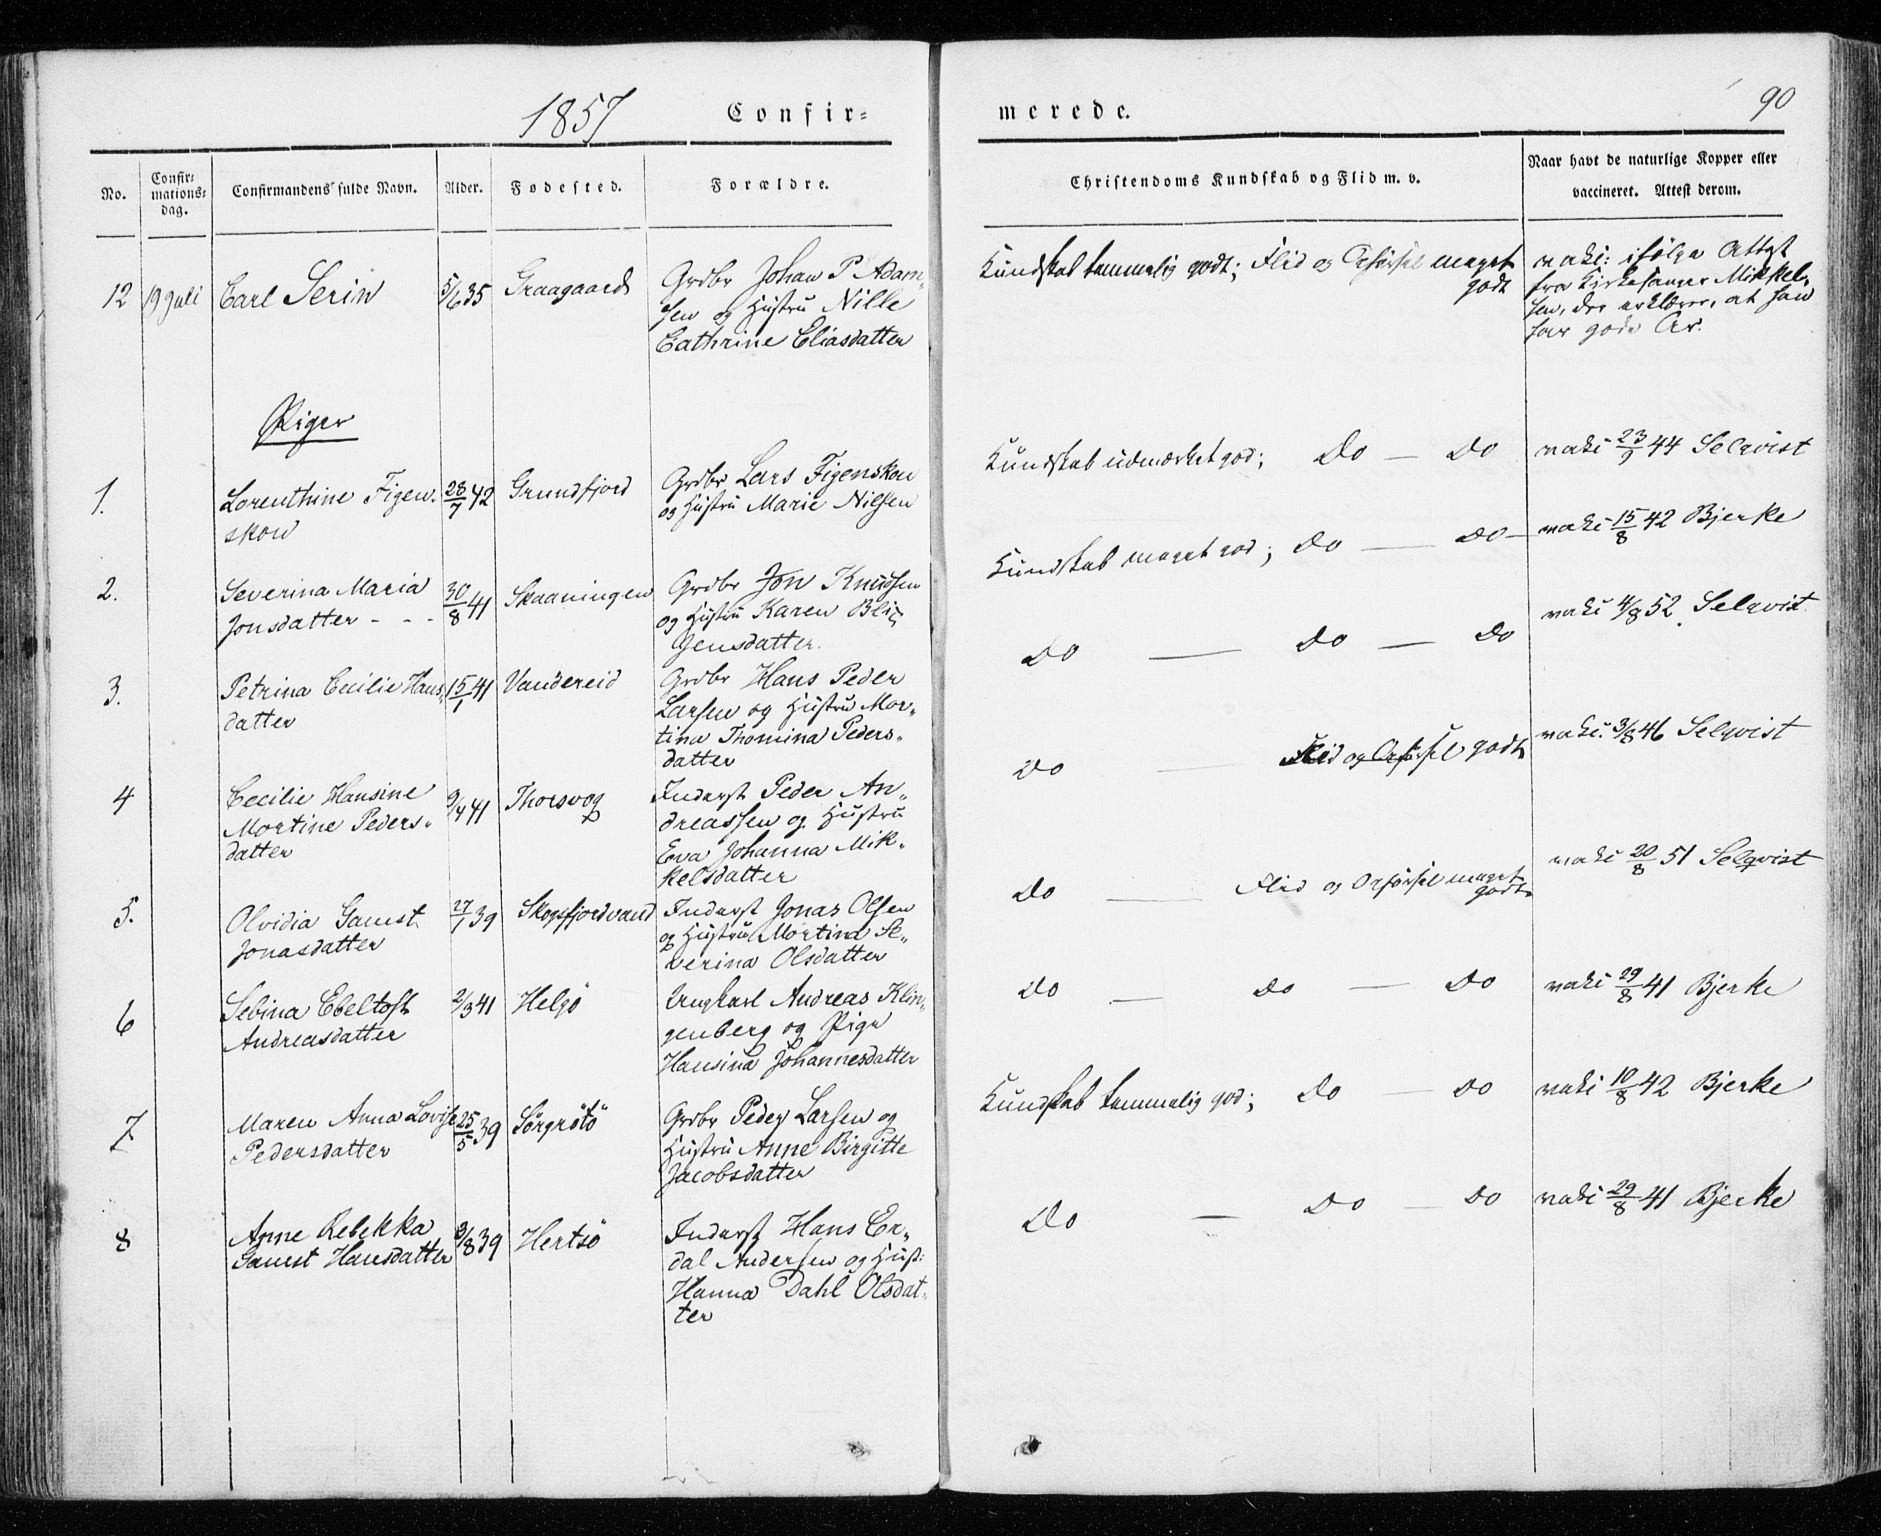 1857 Confir=
merede. 90
No. Confir=mations=dag. Confirmandens fulde Navn. Alder. Fødested. Forældre. Christendoms Kundskab og Flid m. v. Naar havt de naturlige Kopper eller vaccineret. Attest derom.
12 19 Juli Carl Serin 5/6 35 Graagaard Grdbr Johan P Adam-
sen og Hustru Nille
Cathrine Eliasdatter
Kundskab temmelig godt; Flid og Opførsel meget
godt
vaki: ifølge Attest
fra Kirkesanger Mikkel-
sen, der erklærer, at han
har gode Ar.
Piger
1. Lorenthine Figen-
skou
28/7 42 Grundfjord Grdbr Lars Figenskou
og Hustru Marie Nilsen
Kundskab udmærket god; Do — Do
vaki 23/9 44 Selqvist
2. Severina Maria
Jonsdatter - - -
30/8 41 Skaaningen Grdbr Jon Knudsen
og Hustru Karen Blix
Jensdatter.
Kundskab meget god; Do — Do —
vaki 15/8 42 Bjerke
3. Petrina Cecilie Hans-
datter
15/1 41 Vandereid Grdbr Hans Peder
Larsen og Hustru Mor-
tina Thomina Peders-
datter
Do — Do — Do
vaki 4/8 52 Selqvist
4 Cecilie Hansine
Mortine Peders-
datter
9/4 41 Thorsvog Inderst Peder An-
dreassen og Hustru
Eva Johanna Mik-
kelsdatter
Do — Flid og Opførsel godt
vaki: 3/8 46 Selqvist
5. Olvidia Gamst
Jonasdatter
27/1 39 Skogsfjordvand Inderst Jonas Olsen
og Hustru Mortina Se-
verina Olsdatter
Do — Flid og Opførsel meget
godt
vaki 20/8 51 Selqvist
6 Sebina Ebeltoft
Andreasdatter
2/3 41 Helgö Ungkarl Andreas Klin-
genberg og Pige
Hansina Johannesdatter
Do — Do — Do
vaki 29/8 41 Bjerke
7 Maren Anna Lovise
Pedersdatter
25/5 39 Sörgrötö Grdbr Peder Larsen og
Hustru Anne Birgitte
Jacobsdatter
Kundskab temmelig god; Do — Do
vaki 10/8 42 Bjerke
8 Anne Rebekka
Gamst Hansdatter
3/8 39 Hertsö Inderst Hans En-
dal Andersen og Hust:
Hanna Dahl Olsdat-
ter
Do — Do — Do
vaki 29/8 41 Bjerke